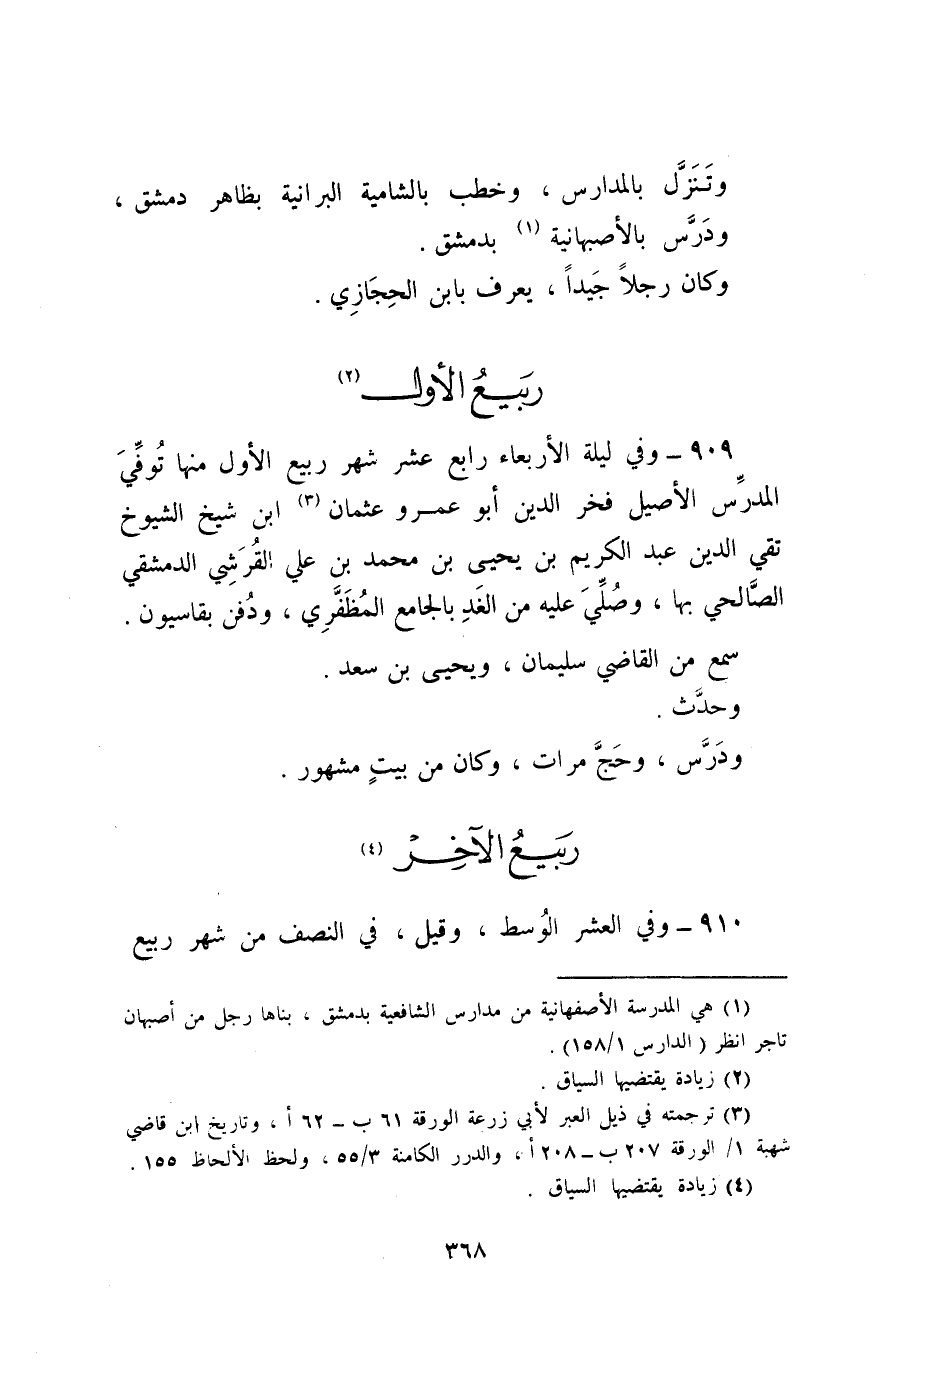 وتَنَزَّل بالمدارس ، وخطب بالشامية البرانية بظاهر دمشق ،
ودَرَّس بالأصبهانية (١) بدمشق .
وكان رجلاً جَيداً ، يعرف بابن الحِجَازِي .
ربَيعُ الأول (٢)
٩٠٩ ـ وفي ليلة الأربعاء رابع عشر شهر ربيع الأول منها تُوفِّيَ
المدرِّس الأصيل فخر الدين أبو عمرو عثمان (٣) ابن شيخ الشيوخ
تقي الدين عبد الكريم بن يحيى بن محمد بن علي القُرَشِي الدمشقي
الصَّالحي بها ، وصُلِّيَ عليه من الغَدِ بالجامع المُظَفَّرِي ، ودُفن بقاسيون .
سمع من القاضي سليمان ، ويحيى بن سعد .
وحدَّث .
ودَرَّس ، وحَجَّ مرات ، وكان من بيتٍ مشهور .
ربَيعُ الآخِر (٤)
٩١٠ ـ وفي العشر الوُسط ، وقيل ، في النصف من شهر ربيع
(١) هي المدرسة الأصفهانية من مدارس الشافعية بدمشق ، بناها رجل من أصبهان
تاجر انظر ( الدارس ١٥٨/١) .
(٢) زيادة يقتضيها السياق .
(٣) ترجمته في ذيل العبر لأبي زرعة الورقة ٦١ ب ـ ٦٢ أ ، وتاريخ ابن قاضي
شهبة ١/ الورقة ٢٠٧ ب ـ ٢٠٨ أ ، والدرر الكامنة ٥٥/٣ ، ولحظ الألحاظ ١٥٥ .
(٤) زيادة يقتضيها السياق .
٣٦٨